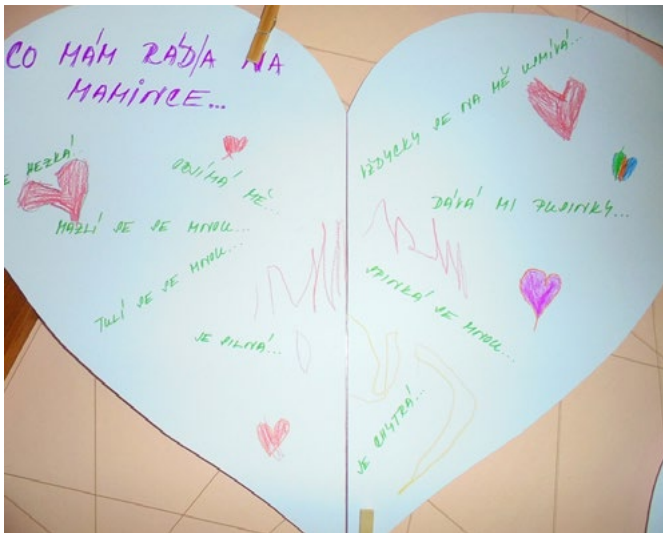 CO MÁM RÁD/A NA
MAMINCE...
E HEZKÁ...
OBJÍMÁ MĚ...
MAZLÍ SE SE MNOU...
TULÍ SE SE MNOU...
JE SILNÁ...
VŽDYCKY SE NA MĚ USMÍVÁ...
DÁVÁ MI PUSINKY...
SPINKÁ SE MNOU...
JE CHYTRÁ...